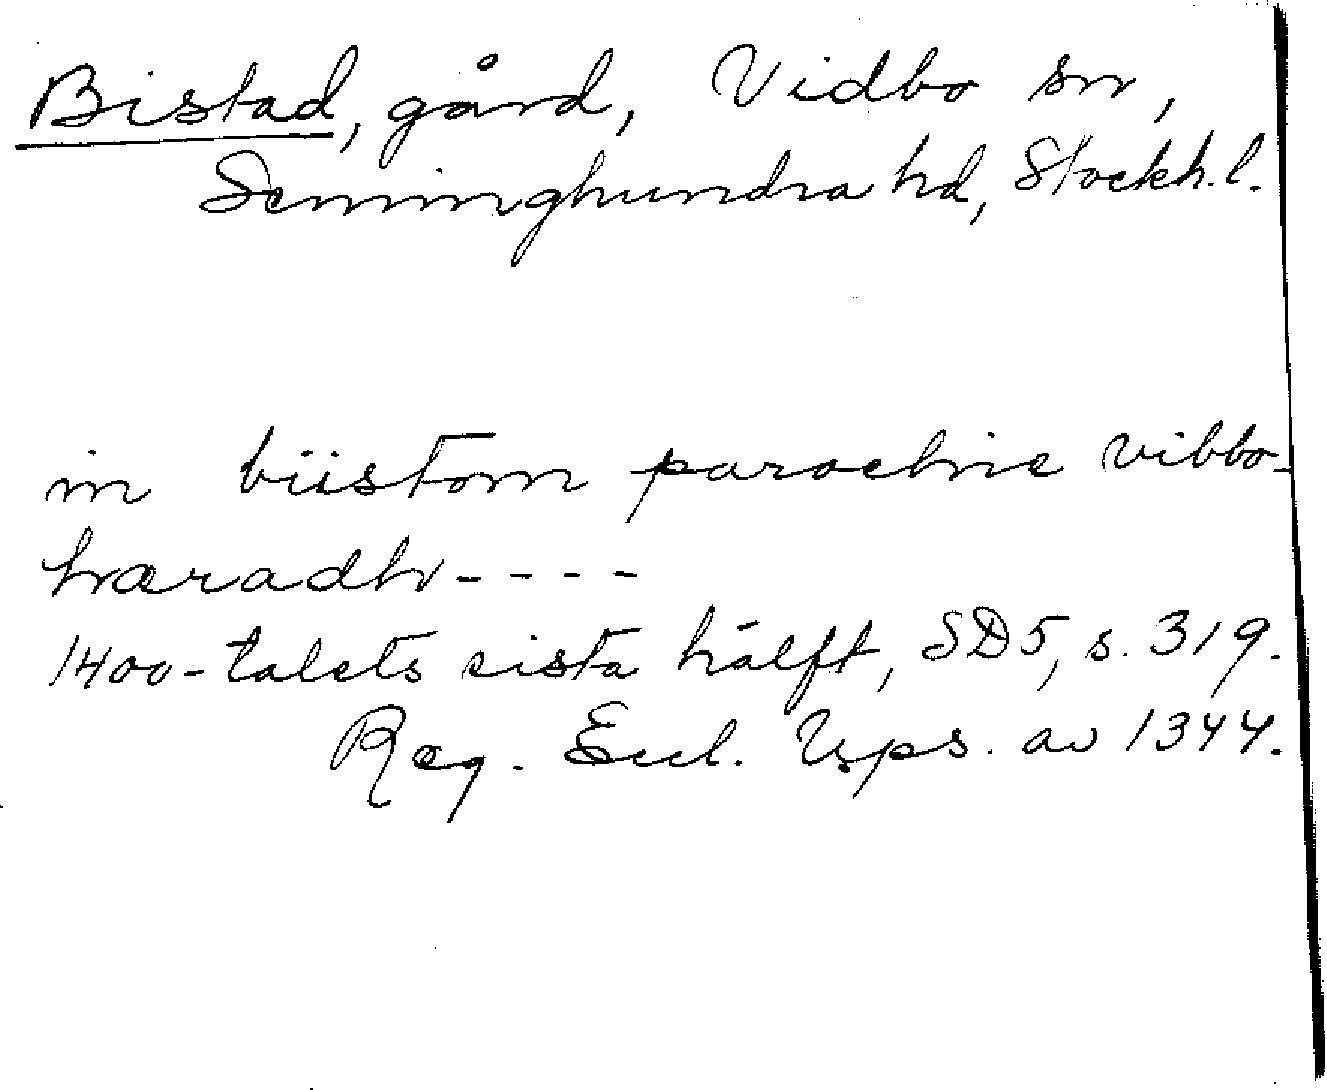 Bistad, gård, Vidbo sn,
Seminghundra hd, Stockh. l.
in biistom parochie vibbo-
haradh - - - -
1400-talets sista hälft, SD5, s. 319.
Reg. Eccl. Ups. av 1344.